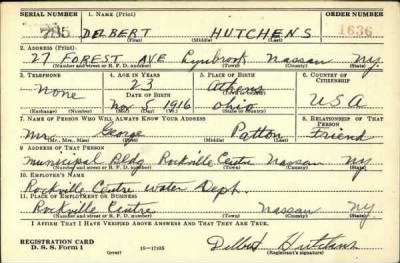 SERIAL NUMBER 1. NAME (Print) ORDER NUMBER
785 DELBERT HUTCHENS 1636
(First) (Middle) (Last)
2. ADDRESS (Print)
27 FOREST AVE Lynbrook Nassau NY
(Number and street or R. F. D. number) (Town) (County) (State)
3. TELEPHONE 4. AGE IN YEARS 5. PLACE OF BIRTH 6. COUNTRY OF CITIZENSHIP
None 23 Athens
DATE OF BIRTH (Town or county)
Nov 8 1916 Ohio USA
(Exchange) (Number) (Mo.) (Day) (Yr.) (State or country)
7. NAME OF PERSON WHO WILL ALWAYS KNOW YOUR ADDRESS 8. RELATIONSHIP OF THAT PERSON
Mr. George Patton Friend
(Mr., Mrs., Miss) (First) (Middle) (Last)
9. ADDRESS OF THAT PERSON
Municipal Bldg Rockville Centre Nassau NY
(Number and street or R. F. D. number) (Town) (County) (State)
10. EMPLOYER'S NAME
Rockville Centre Water Dept.
11. PLACE OF EMPLOYMENT OR BUSINESS
Rockville Centre Nassau NY.
(Number and street or R. F. D. number) (Town) (County) (State)
I AFFIRM THAT I HAVE VERIFIED ABOVE ANSWERS AND THAT THEY ARE TRUE.
REGISTRATION CARD
D. S. S. Form 1 (over) 16—17105 Delbert Hutchens
(Registrant's signature)